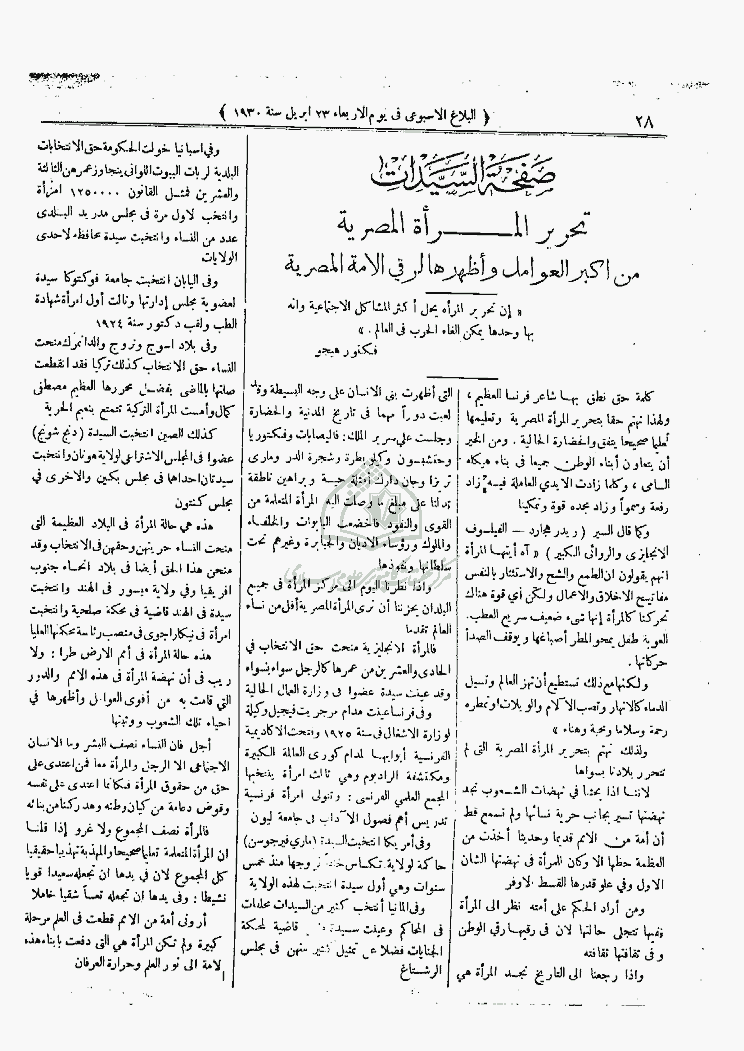 ٢٨
﴿ البلاغ الاسبوعى فى يوم الاربعاء ٢٣ ابريل سنة ١٩٣٠ ﴾
صفحة السيدات
تحرير المرأة المصرية
من اكبر العوامل وأظهرها لرقي الامة المصرية
« إن تحرير المرأه يحل أكثر المشاكل الاجتماعية وانه
بها وحدها يمكن الغاء الحرب فى العالم . »
فكتور هيجو
كلمة حق نطق بها شاعر فرنسا العظيم ،
ولهذا نهتم حقا بتحرير المرأة المصرية وتعليمها
تعليما صحيحا يتفق والحضارة الحالية . ومن الخير
أن يتعاون أبناء الوطن جميعا فى بناء هيكله
السامى ، وكلما زادت الايدي العاملة فيه زاد
رفعة وسموا وزاد مجده قوة وتمكينا
وكما قال السير ( ريدر هجارد — الفيلسوف
الانجليزى والروائى الكبير ) « آه أيتها المرأة
انهم يقولون ان الطمع والشح والاستئثار بالنفس
مفاتيح الاخلاق والاعمال ولكن أي قوة هناك
تحركنا كالمرأة إنها شىء ضعيف سريع العطب.
العوبة طفل يمحو المطر أصباغها ويوقف الصدأ
حركاتها .
ولكنها مع ذلك تستطيع أن تهز العالم وتسيل
الدماء كالانهار وتصب الآلام والويلات او تمطره
رحمة وسلاما ومحبة وهناء »
ولذلك نهتم بتحرير المرأة المصرية التى لم
تتحرر بلادنا بسواها
لاننا اذا بحثنا فى نهضات الشعوب نجد
نهضتها تسير بجانب حرية نسائها ولم نسمع قط
أن أمة من الامم قديما وحديثا أخذت من
العظمة حظها الا وكان المرأة فى نهضتها الشان
الاول وفي علو قدرها القسط الاوفر
ومن أراد الحكم على أمته نظر الى المرأة
ففيها تتجلى حالتها لان فى رقيها رقي الوطن
وفى ثقافتها ثقافته
واذا رجعنا الى التاريخ نجد المرأة هي
التى أظهرت بنى الانسان على وجه البسيطة وقد
لعبت دوراً مهما فى تاريخ المدنية والحضارة
وجلست على سرير الملك: فاليصابات وفكتوريا
وحتشبسون وكيلوبطرة وشجرة الدر ومارى
تريزا وجان دارك أمثلة حية وبراهين ناطقة
تدلنا على مبلغ ما وصلت اليه المرأة المتعلمة من
القوى والنفوذ فاخضعت البابوات والخلفاء
والملوك ورؤساء الاديان والجبابرة وغيرهم تحت
سلطانها ونفوذها
واذا نظرنا اليوم الى مركز المرأة فى جميع
البلدان يحزننا أن نرى المرأة المصرية أقل من نساء
العالم تقدما
فالمرأة الانجليزية منحت حق الانتخاب فى
الحادى والعشرين من عمرها كالرجل سواء بسواء
وقد عينت سيدة عضوا فى وزارة العمال الحالية
وفى فرنسا عينت مدام مرجريت فيجيل وكيلة
لوزارة الاشغال فى سنة ١٩٢٥ وانتحت الاكاديمية
الفرنسية أبوابها لمدام كورى العالمة الكبيرة
ومكتشفة الراديوم وهي ثالث امرأة ينتخبها
المجمع العلمي الفرنسى : وتتولى امرأة فرنسية
تدريس أهم فصول الآداب فى جامعة ليون
وفى أمريكا انتخبت السيدة (مارى فيرجوسن)
حاكمة لولاية تكساس زوجها منذ خمس
سنوات وهي أول سيدة انتخبت لهذه الولاية
وفى المانيا أنتخب كثير من السيدات محلفات
فى المحاكم وعينت سيدة قاضية لمحكمة
الجنايات فضلا عن تمثيل كثير منهن فى مجلس
الرشستاغ
وفى اسبانيا خولت الحكومة حق الانتخابات
البلدية لربات البيوت اللوانى يتجاوز عمرهن الثالثة
والعشرين فشمل القانون ١٢٥٠٠٠٠ امرأة
وانتخب لاول مرة فى مجلس مدريد البلدى
عدد من النساء وانتخبت سيدة محافظه لاحدى
الولايات
وفى اليابان انتخبت جامعة فوكتوكا سيدة
لعضوية مجلس إدارتها ونالت أول امرأة شهادة
الطب ولقب دكتور سنة ١٩٢٤
وفى بلاد اسوج ونروج والدانمرك منحت
النساء حق الانتخاب كذلك تركيا فقد انقطعت
صلتها بالماضى بفضل محررها العظيم مصطفى
كمال وأمست المرأة التركية تتمتع بنعيم الحرية
كذلك الصين انتخبت السيدة ( دنج شونج )
عضوا فى المجلس الاشتراعى لولاية هونان وانتخبت
سيدتان احداهما فى مجلس بكين والاخرى فى
مجلس كنتون
هذه هي حالة المرأة فى البلاد العظيمة التى
منحت النساء حريتهن وحقهن فى الانتخاب وقد
منحن هذا الحق أيضا فى بلاد اتحاد جنوب
افريقيا وفي ولاية ميسور فى الهند وانتخبت
سيدة فى الهند قاضية فى محكة صلحية وانتخبت
امرأة فى نيكاراجوى فى منصب رئاسة محكمتها العليا
هذه حالة المرأة فى أمم الارض طرا : ولا
ريب فى أن نهضة المرأة فى هذه الامم والدور
التي قامت به من أقوى العوامل وأظهرها فى
احياء تلك الشعوب ورقيها
أجل فان النساء نصف البشر وما الانسان
الاجتماعى الا الرجل والمرأة معا فمن اعتدى على
حق من حقوق المرأة فكانما اعتدى على نفسه
وقوض دعامة من كيان وطنه وهد ركنا من بنائه
فالمرأة نصف المجموع ولا غرو إذا قلنا
ان المرأة المتعلمة تعليما صحيحا والمهذبة تهذيبا حقيقيا
كل المجموع لان فى يدها ان تجعله سعيدا قويا
نشيطا : وفى يدها ان تجعله تعسا شقيا خاملا
أرونى أمة من الامم قطعت فى العلم مرحلة
كبيرة ولم تكن المرأة هي التى دفعت بابناء هذه
الامة الى نور العلم وحرارة العرفان